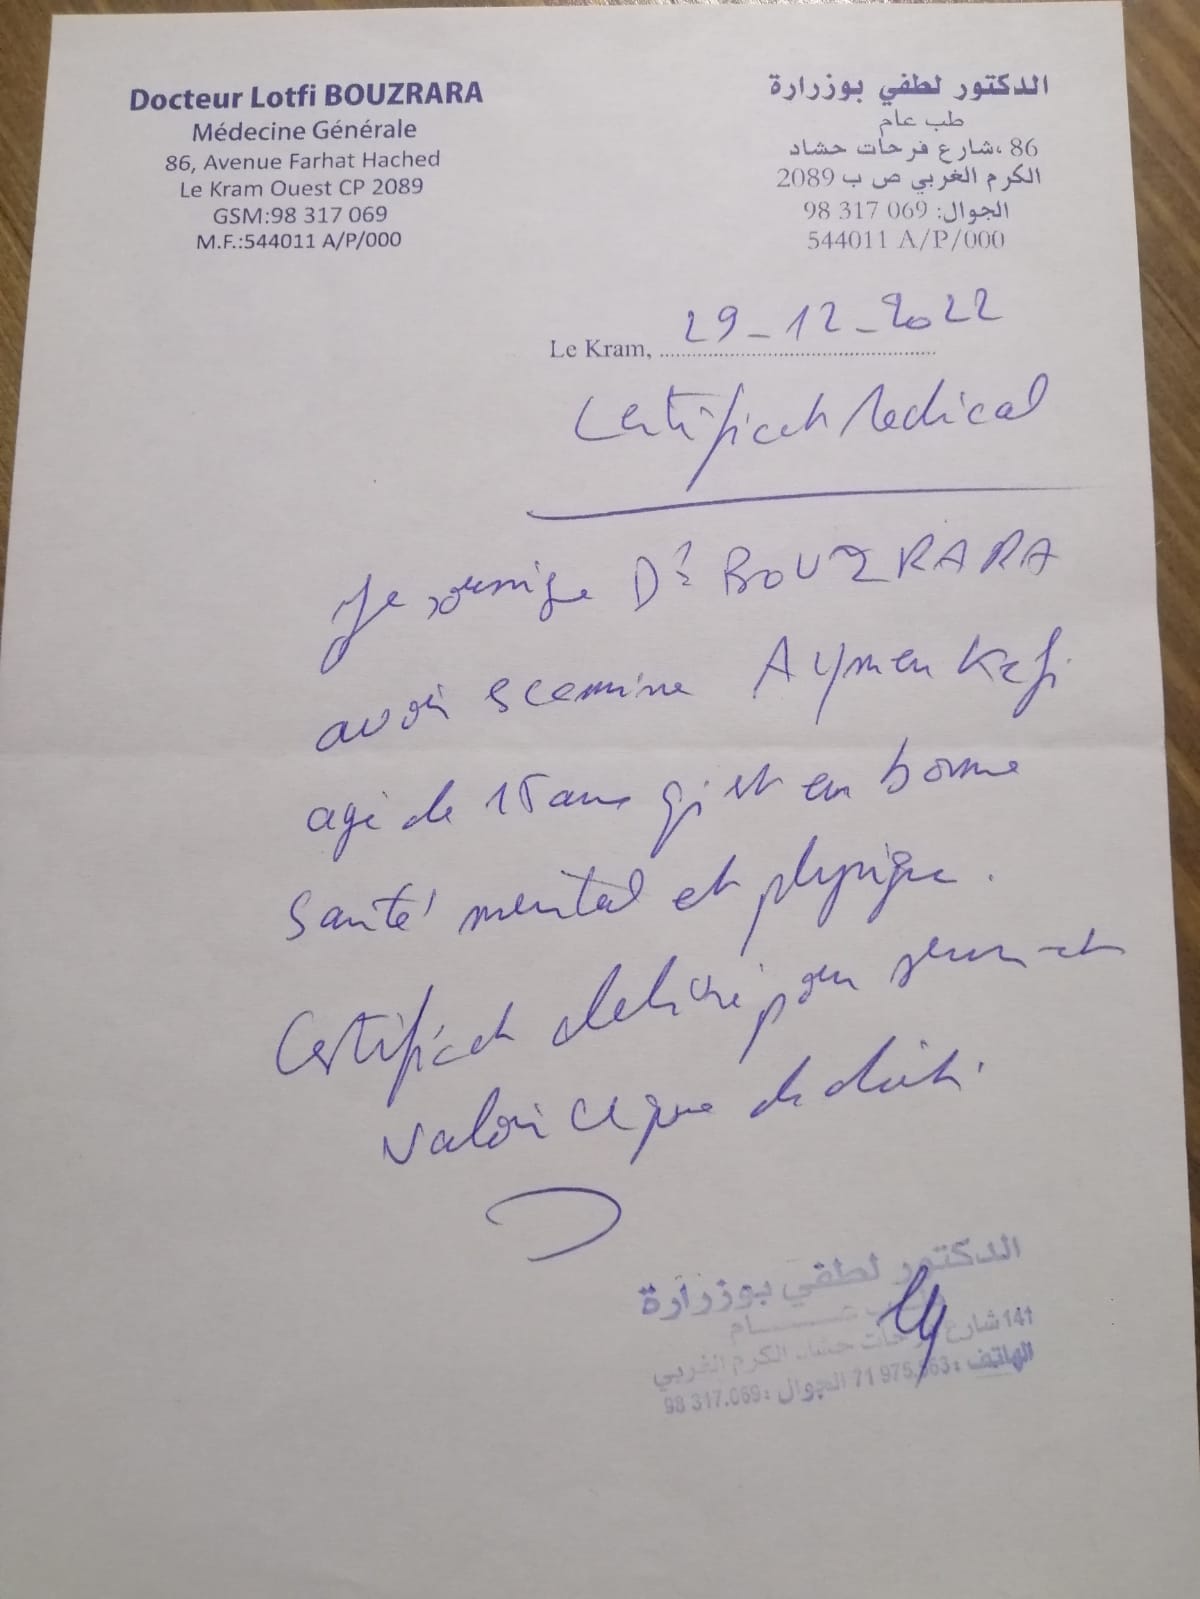 Docteur Lotfi BOUZRARA
Médecine Générale
86, Avenue Farhat Hached
Le Kram Ouest CP 2089
GSM:98 317 069
M.F.:544011 A/P/000
الدكتور لطفي بوزرارة
طب عام
86 ،شارع فرحات حشاد
الكرم الغربي ص ب 2089
الجوال: 069 317 98
544011 A/P/000
Le Kram, 29-12-2022
Certificat Medical
Je soussigne Dr BOUZRARA
avoir examine Aymen Kefi
agé de 15 ans qi est en bonne
santé mental et physique.
Certificat delivré pour servir et
valoir ce que de droit.
الدكتور لطفي بوزرارة
طب عـــــام
141 شارع فرحات حشاد الكرم الغربي
الهاتف : 71 975.563 الجوال : 98 317.069